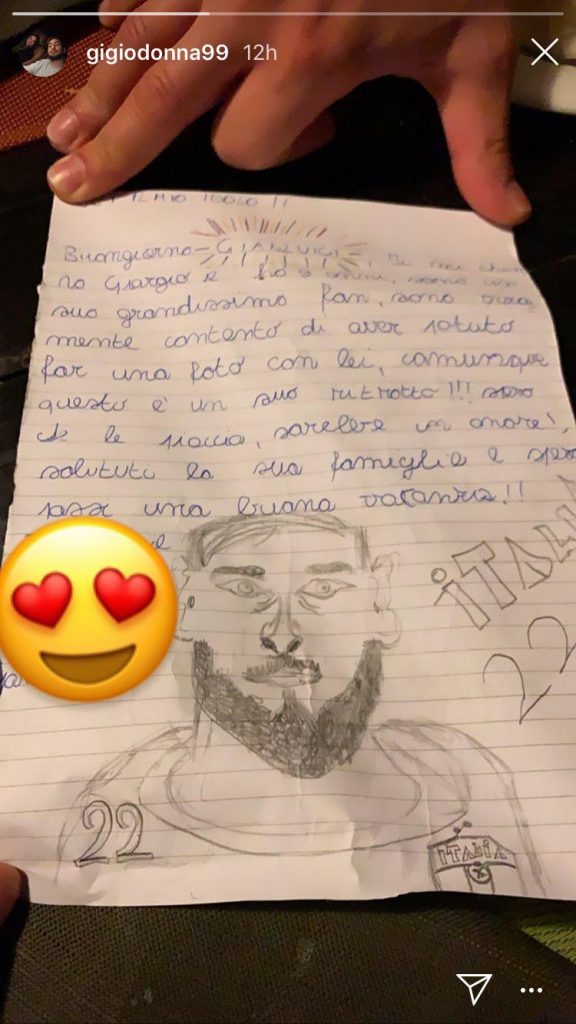 gigiodonna99 12h
MIO IDOLO !!
Buongiorno - GIANLUIGI -,
no Giorgio e ho 9 anni, sono un
suo grandissimo fan, sono vera
mente contento di aver potuto
far una foto con lei, comunque
questo è un suo
le piaccia, sarebbe un onore!,
la sua famiglia e spero
passi una buona vacanza!!
ITALIA
22
22
ITALIA